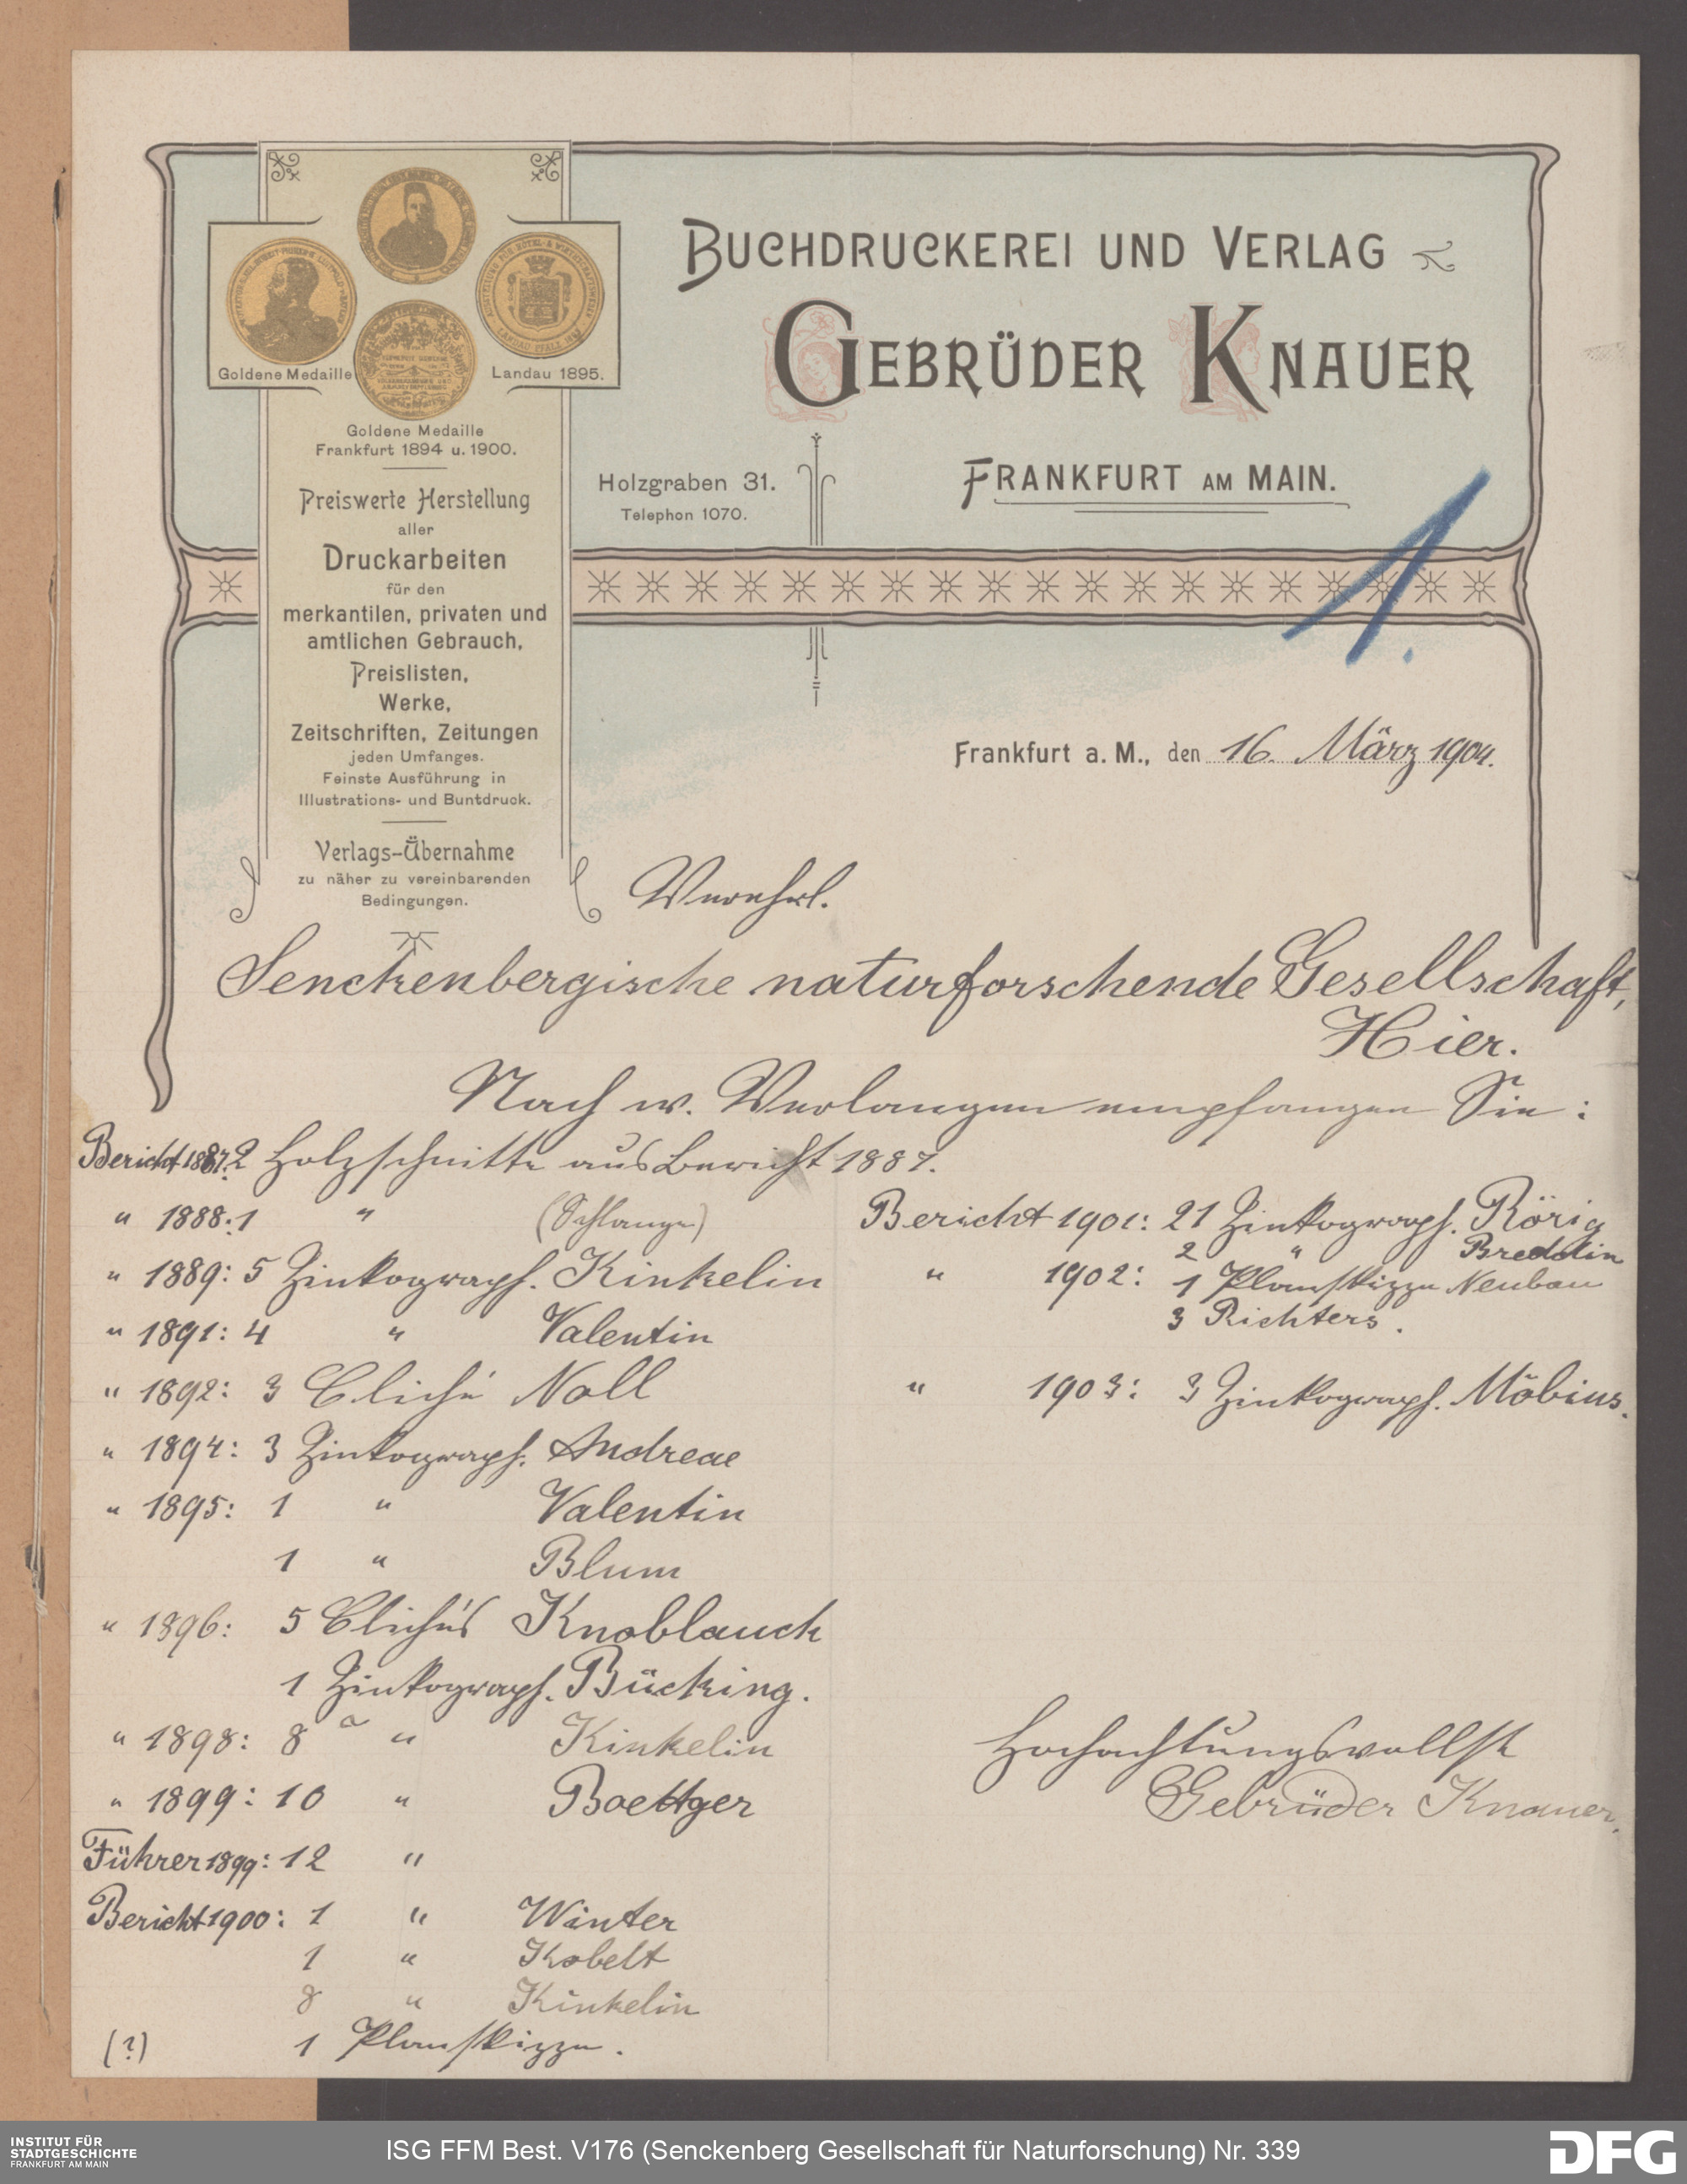 BUCHDRUCKEREI UND VERLAG
GEBRÜDER KNAUER
FRANKFURT AM MAIN.
Holzgraben 31.
Telephon 1070.
Goldene Medaille
Landau 1895.
Goldene Medaille
Frankfurt 1894 u. 1900.
Preiswerte Herstellung
aller
Druckarbeiten
für den
merkantilen, privaten und
amtlichen Gebrauch,
Preislisten,
Werke,
Zeitschriften, Zeitungen
jeden Umfanges.
Feinste Ausführung in
Illustrations- und Buntdruck.
Verlags-Übernahme
zu näher zu vereinbarenden
Bedingungen.
1.
Frankfurt a. M., den 16. März 1904.
Verehrl.
Senckenbergische naturforschende Gesellschaft,
Hier.
Nach w. Verlangen empfangen Sie:
Bericht 1887: 2 Holzschnitte aus Bericht 1887.
" 1888: 1 " (Schlange)
" 1889: 5 Zinkograph. Kinkelin
" 1891: 4 " Valentin
" 1892: 3 Cliché Noll
" 1894: 3 Zinkograph. Andreae
" 1895: 1 " Valentin
1 " Blum
" 1896: 5 Clichés Knoblauch
1 Zinkograph. Bücking.
" 1898: 8 " Kinkelin
" 1899: 10 " Boettger
Führer 1899: 12 "
Bericht 1900: 1 " Winter
1 " Kobelt
8 " Kinkelin
(?) 1 Planskizze.
Bericht 1901: 21 Zinkograph. Rörig
2 " Breddin
" 1902: 1 Planskizze Neubau
3 Richters.
" 1903: 3 Zinkograph. Möbius.
Hochachtungsvollst
Gebrüder Knauer.
INSTITUT FÜR
STADTGESCHICHTE
FRANKFURT AM MAIN
ISG FFM Best. V176 (Senckenberg Gesellschaft für Naturforschung) Nr. 339
DFG